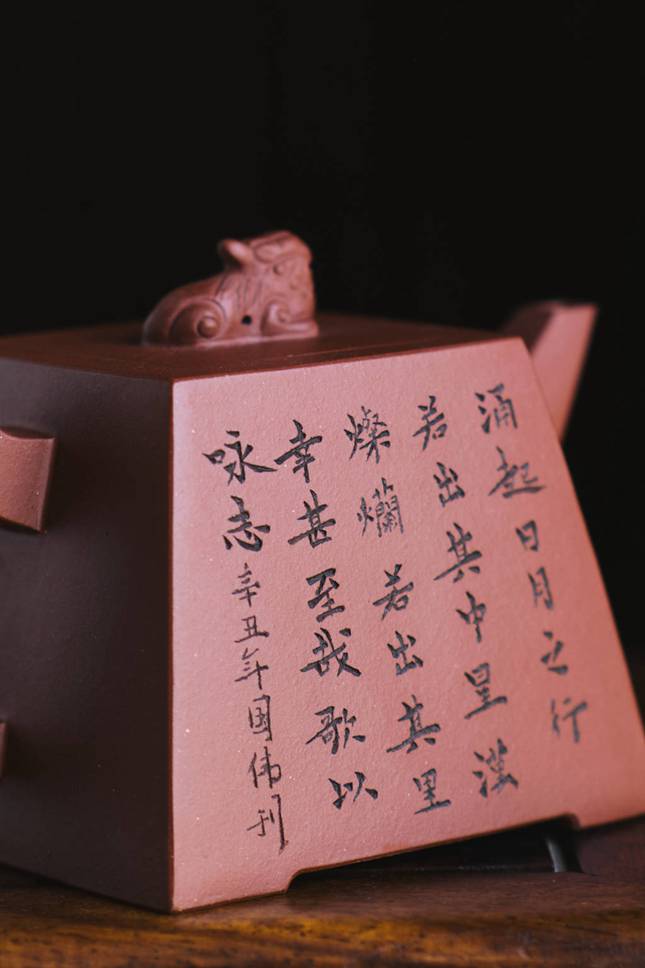 涌起日月之行
若出其中星漢
燦爛若出其里
幸甚至哉歌以
咏志辛丑年國偉刊